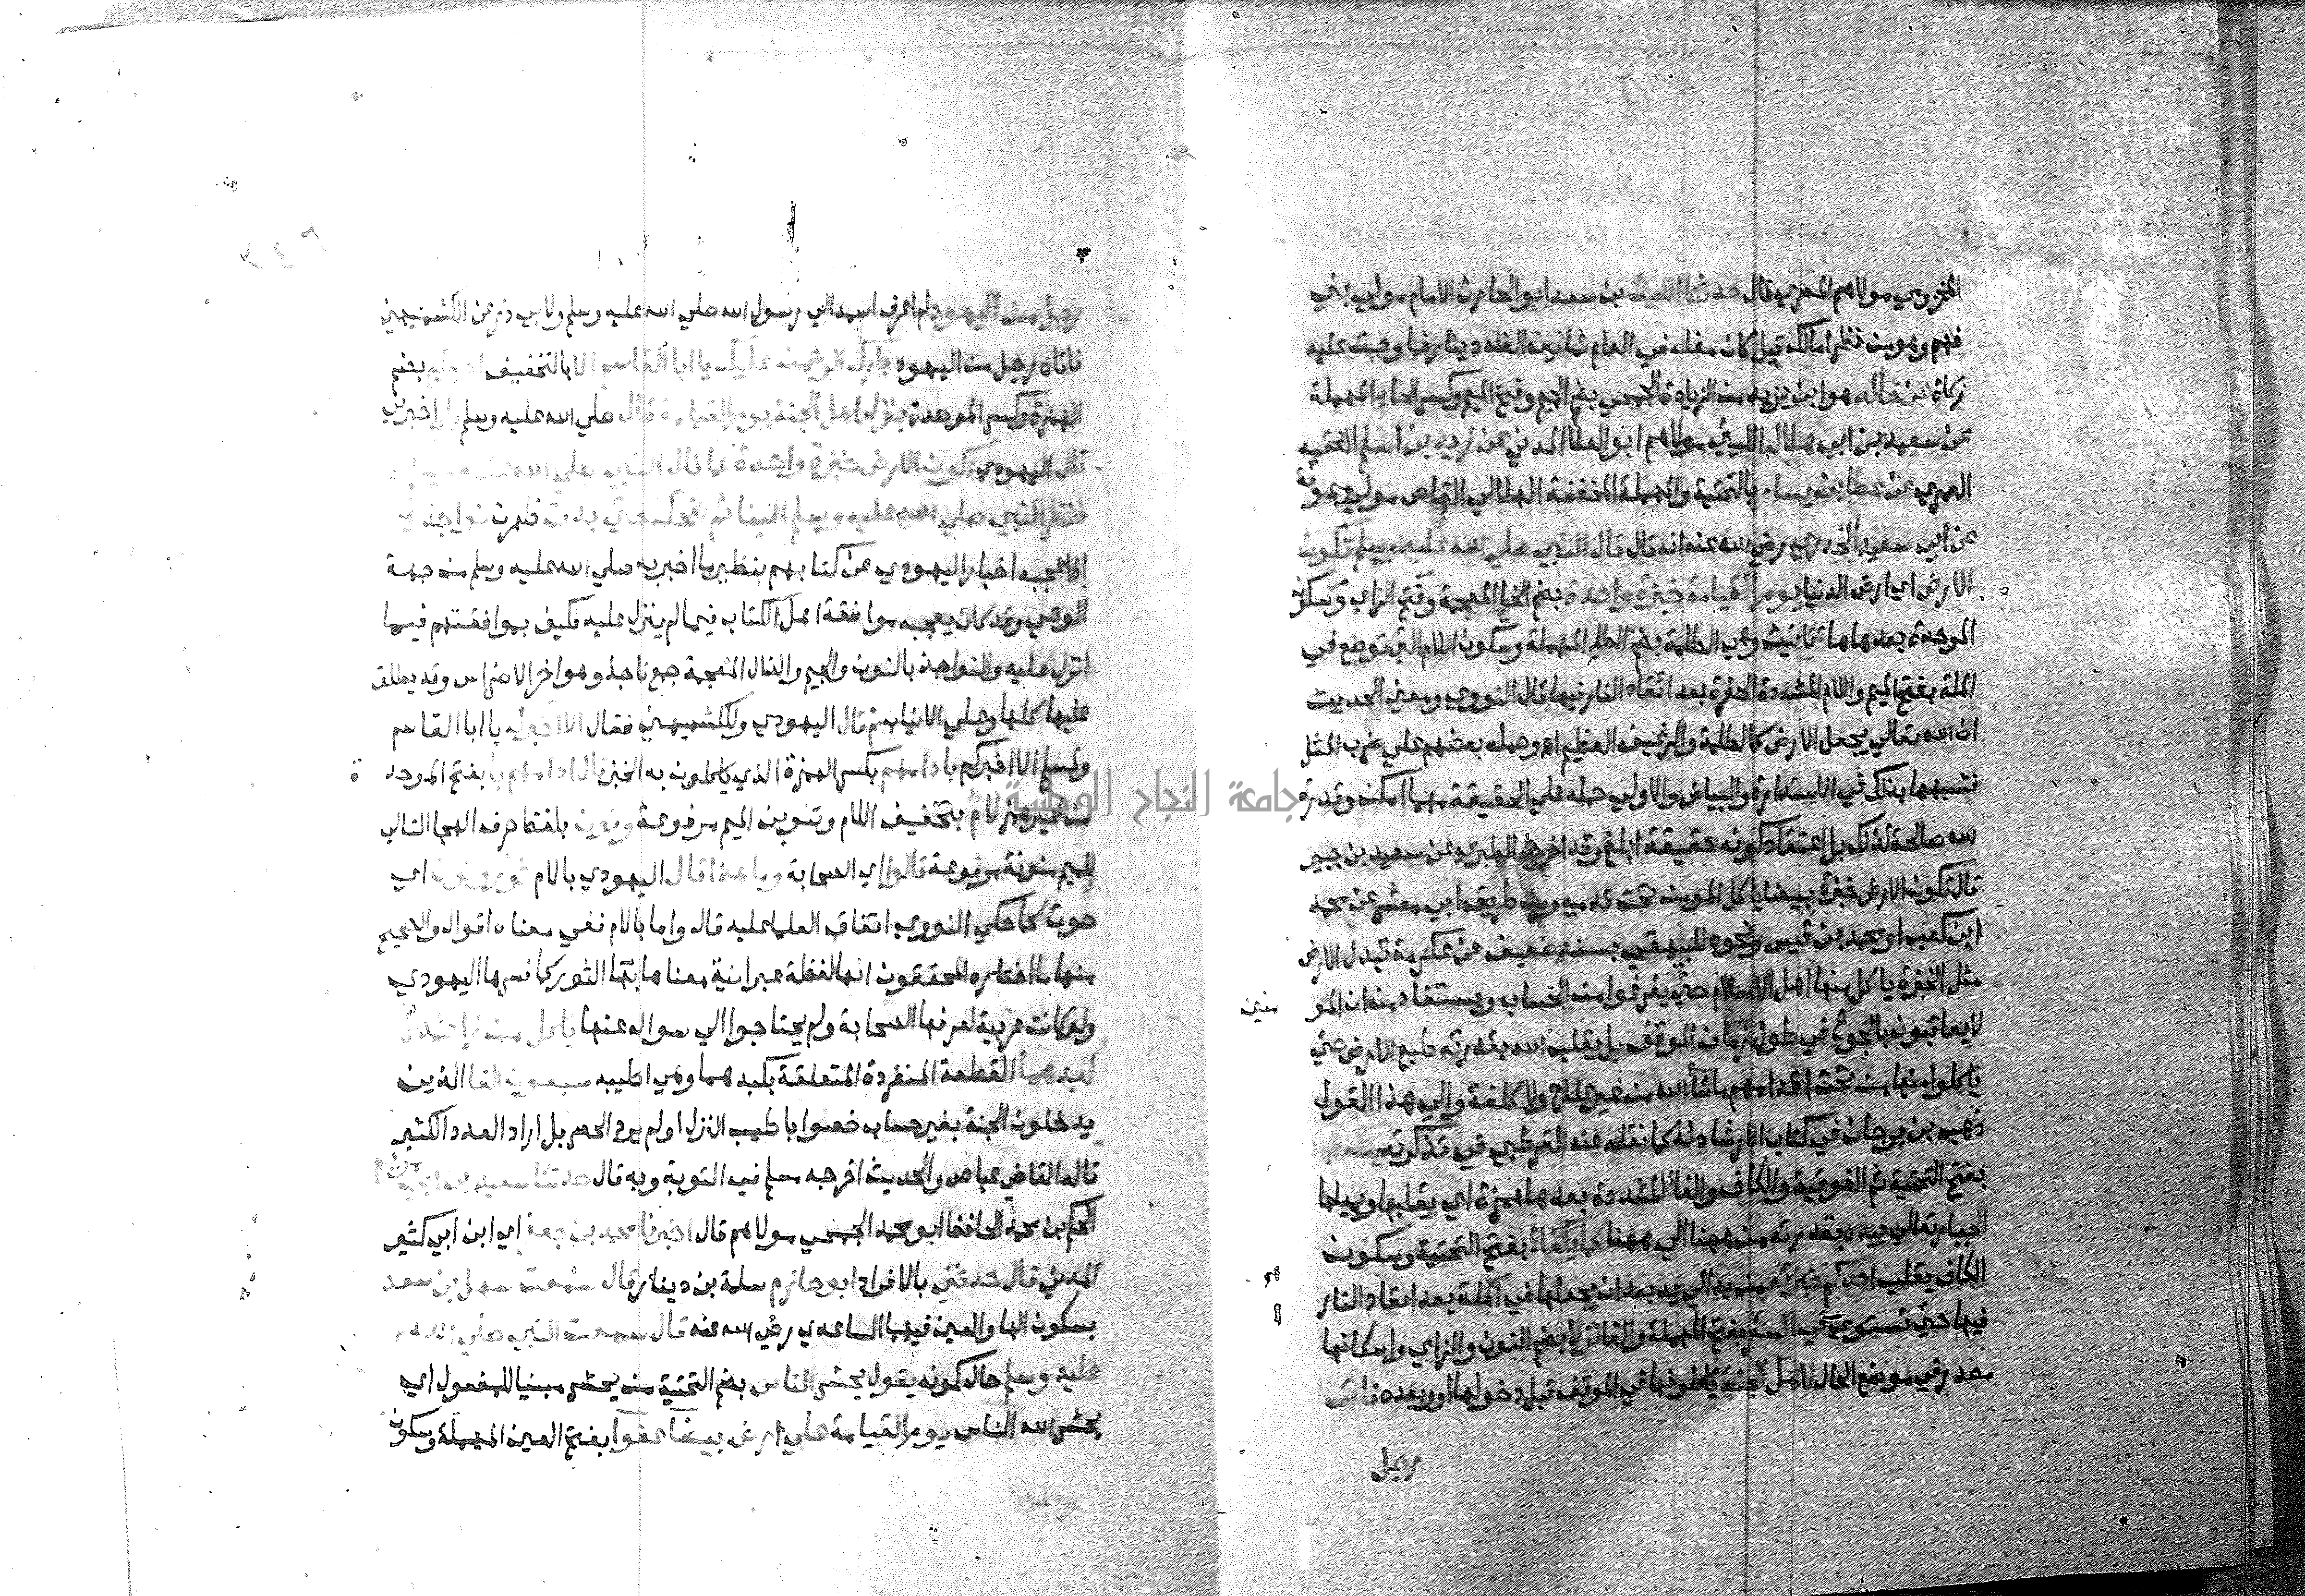 المخزومي مولاهم المصري قال حدثنا الليث بن سعد ابو الحارث الامام مولي بني
فهم وهو من نظراء مالك قيل كان مغله في العام ثمانين الف دينار فما وجبت عليه
زكاة عن خالد هو ابن يزيد من الزيادة الجمحي بضم الجيم وفتح الميم وكسر الحاء المهملة
عن سعيد بن ابي هلال الليثي مولاهم ابو العلا المدني عن زيد بن اسلم الفقيه
العمري عن عطا بن يسار بالتحتية والمهملة المخففة الهلالي القاص مولي ميمونة
عن ابي سعيد الخدري رضي الله عنه انه قال قال النبي صلي الله عليه وسلم تكون
الارض اي ارض الدنيا يوم القيامة خبزة واحدة بضم الخا المعجمة وفتح الزاي وسكون
الموحدة بعدها ها تانيث وهي الطلمة بضم الطا المهملة وسكون اللام التي توضع في
الملة بفتح الميم واللام المشددة الحفرة بعد ايقاد النار فيها قال النووي ومعني الحديث
ان الله تعالي يجعل الارض كالطلمة والرغيف العظيم اه وحمله بعضهم علي ضرب المثل
فشبهها بذلك في الاستدارة والبياض والاولي حمله علي الحقيقة مهما امكن وقدرة
الله صالحة لذلك بل اعتقاد كونه حقيقة ابلغ وقد اخرج الطبري عن سعيد بن جبير
قال تكون الارض خبزة بيضا ياكل المومن من تحت قدميه ومن طريق ابي معشر عن محمد
ابن كعب او محمد بن قيس ونحوه للبيهقي بسند ضعيف عن عكرمة تبدل الارض
مثل الخبزة ياكل منها اهل الاسلام حتي يفرغوا من الحساب ويستفاد منه ان المو منين
لا يعاقبون بالجوع في طول زمان الموقف بل يقلب الله بقدرته طبع الارض حتي
ياكلوا منها من تحت اقدامهم ماشا الله من غير علاج ولا كلفة والي هذا القول
ذهب بن برجان في كتاب الارشاد له كما نقله عنه القرطبي في تذكرته
بفتح التحتية ثم الفوقية والكاف والفا المشددة بعدها همزة اي يقلبها ويميلها
الجبار تعالي بيده بقدرته من ههنا الي ههنا كما يكفا بفتح التحتية وسكون
الكاف يقلب احدكم خبزته من يد الي يد بعد ان يجعلها في الملة بعد ايقاد النار
فيها حتي تستوي في السفر بفتح المهملة والفا نزلا بضم النون والزاي واسكانها
مصدر في موضع الحال لاهل الجنة ياكلونها في الموقف قبل دخولها او بعده فاتي
رجل
رجل من اليهود لم اعرف اسمه الي رسول الله صلي الله عليه وسلم ولابي ذر عن الكشميهني
فاتاه رجل من اليهود بارك الرحمن عليك يا ابا القاسم الا بالتخفيف بضم
الهمزة وكسر الموحدة بنزل اهل الجنة يوم القيامة قال صلي الله عليه وسلم اخبرني
قال اليهودي تكون الارض خبزة واحدة كما قال النبي صلي الله عليه وسلم
فنظر النبي صلي الله عليه وسلم الينا ثم ضحك حتي بدت ظهرت نواجذه
اذا عجبه اخبار اليهودي عن كتابهم بنظير ما اخبر به صلي الله عليه وسلم من جهة
الوحي وقد كان يعجبه موافقة اهل الكتاب فيما لم ينزل عليه فكيف بموافقتهم فيما
انزل عليه والنواجذ بالنون والجيم والذال المعجمة جمع ناجذ وهو اخر الاضراس وقد يطلق
عليها كلها وعلي الانياب ثم قال اليهودي وللكشميهني فقال الا اخبرك يا ابا القاسم
ولمسلم الا اخبركم بادامهم بكسر الهمزة الذي ياكلون به الخبز قال ادامهم با بفتح الموحد ة
من غير همز لام بتخفيف اللام وتنوين الميم مرفوعة ونون بلفظ حرف الهجا التالي
للميم منونة مرفوعة قالوا اي الصحابة وما هذا قال اليهودي بالام ثور ونون اي
حوت كما حكي النووي اتفاق العلما عليه قال واما بالام ففي معناه اقوال والصحيح
منها ما اختاره المحققون انها لفظة عبرانية معناها بها الثور كما فسرها اليهودي
ولو كانت عربية لعرفها الصحابة ولم يحتاجوا الي سواله عنها ياكل من زائدة
كبدهما القطعة المنفردة المتعلقة بكبدهما وهي اطيبه سبعون الفا الذين
يدخلون الجنة بغير حساب خصوا باطيب النزل او لم يرد الحصر بل اراد العدد الكثير
قاله القاضي عياض والحديث اخرجه مسلم في التوبة وبه قال حدثنا سعيد
الحكم بن محمد الحافظ ابو محمد الجمحي مولاهم قال اخبرنا محمد بن جعفر اي ابن ابي كثير
المدني قال حدثني بالافراد ابو حازم سلمة بن دينار قال سمعت سهل بن سعد
بسكون الها والعين فيهما الساعدي رضي الله عنه قال سمعت النبي صلي الله
عليه وسلم حال كونه يقول يحشر الناس بضم التحتية من يحشر مبنيا للمفعول اي
يحشر الله الناس يوم القيامة علي ارض بيضا عفرا بفتح العين المهملة وسكون
جامعة النجاح الوطنية